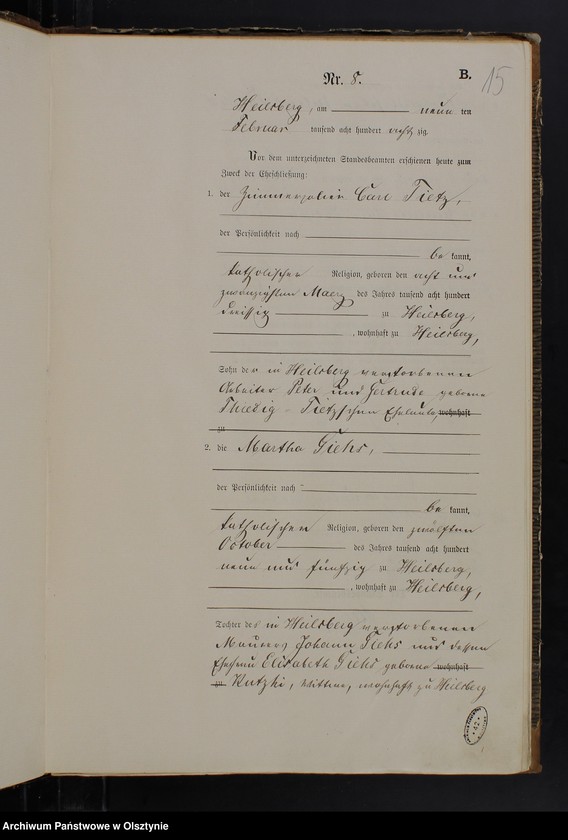 B.
15
Nr. 8.
Heilsberg, am neun ten
Februar tausend acht hundert acht zig.
Vor dem unterzeichneten Standesbeamten erschienen heute zum
Zweck der Eheschließung:
1. der Zimmerpolier Carl Tietz,
der Persönlichkeit nach
be kannt,
katholischer Religion, geboren den acht und
zwanzigsten Maerz des Jahres tausend acht hundert
dreissig zu Heilsberg,
, wohnhaft zu Heilsberg,
Sohn der in Heilsberg verstorbenen
Arbeiter Peter und Gertrude geborne
Thiedig - Tietzschen Eheleute, wohnhaft
zu
2. die Martha Giehs,
der Persönlichkeit nach
be kannt,
katholischer Religion, geboren den zwölften
October des Jahres tausend acht hundert
neun und fünfzig zu Heilsberg,
, wohnhaft zu Heilsberg,
Tochter des in Heilsberg verstorbenen
Maurers Johann Giehs und dessen
Ehefrau Elisabeth Giehs geborne wohnhaft
zu Kutzki, Wittwe, wohnhaft zu Heilsberg
Archiwum Państwowe w Olsztynie